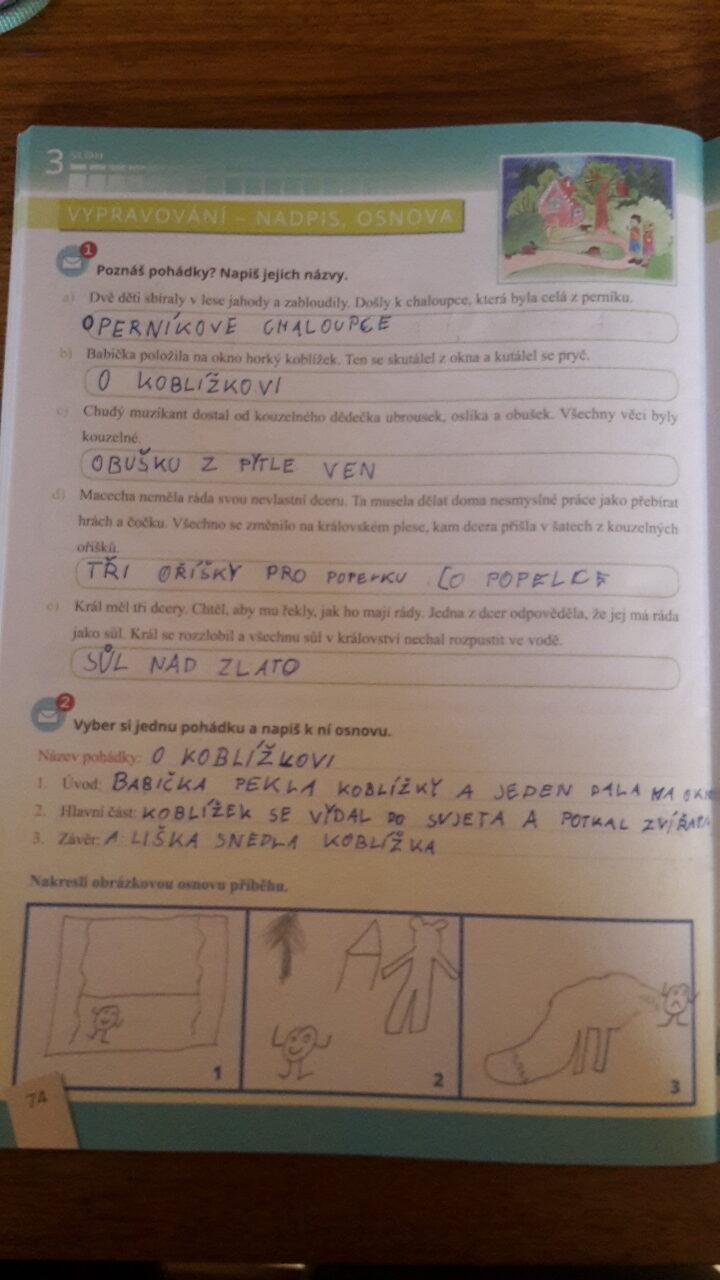 3
VYPRAVOVÁNÍ – NADPIS, OSNOVA
1
Poznáš pohádky? Napiš jejich názvy.
a) Dvě děti sbíraly v lese jahody a zabloudily. Došly k chaloupce, která byla celá z perníku.
O PERNÍKOVE CHALOUPCE
b) Babička položila na okno horký koblížek. Ten se skutálel z okna a kutálel se pryč.
O KOBLÍŽKOVI
c) Chudý muzikant dostal od kouzelného dědečka ubrousek, oslíka a obušek. Všechny věci byly
kouzelné.
OBUŠKU Z PYTLE VEN
d) Macecha neměla ráda svou nevlastní dceru. Ta musela dělat doma nesmyslné práce jako přebírat
hrách a čočku. Všechno se změnilo na královském plese, kam dcera přišla v šatech z kouzelných
oříšků.
TŘI OŘÍŠKY PRO O POPELCE
e) Král měl tři dcery. Chtěl, aby mu řekly, jak ho mají rády. Jedna z dcer odpověděla, že jej má ráda
jako sůl. Král se rozzlobil a všechnu sůl v království nechal rozpustit ve vodě.
SŮL NAD ZLATO
2
Vyber si jednu pohádku a napiš k ní osnovu.
Název pohádky: O KOBLÍŽKOVI
1. Úvod: BABIČKA PEKLA KOBLÍŽKY A JEDEN DALA NA
2. Hlavní část: KOBLÍŽEK SE VYDAL DO SVJETA A POTKAL
3. Závěr: A LIŠKA SNEDLA KOBLÍŽKA
Nakresli obrázkovou osnovu příběhu.
1
2
3
74